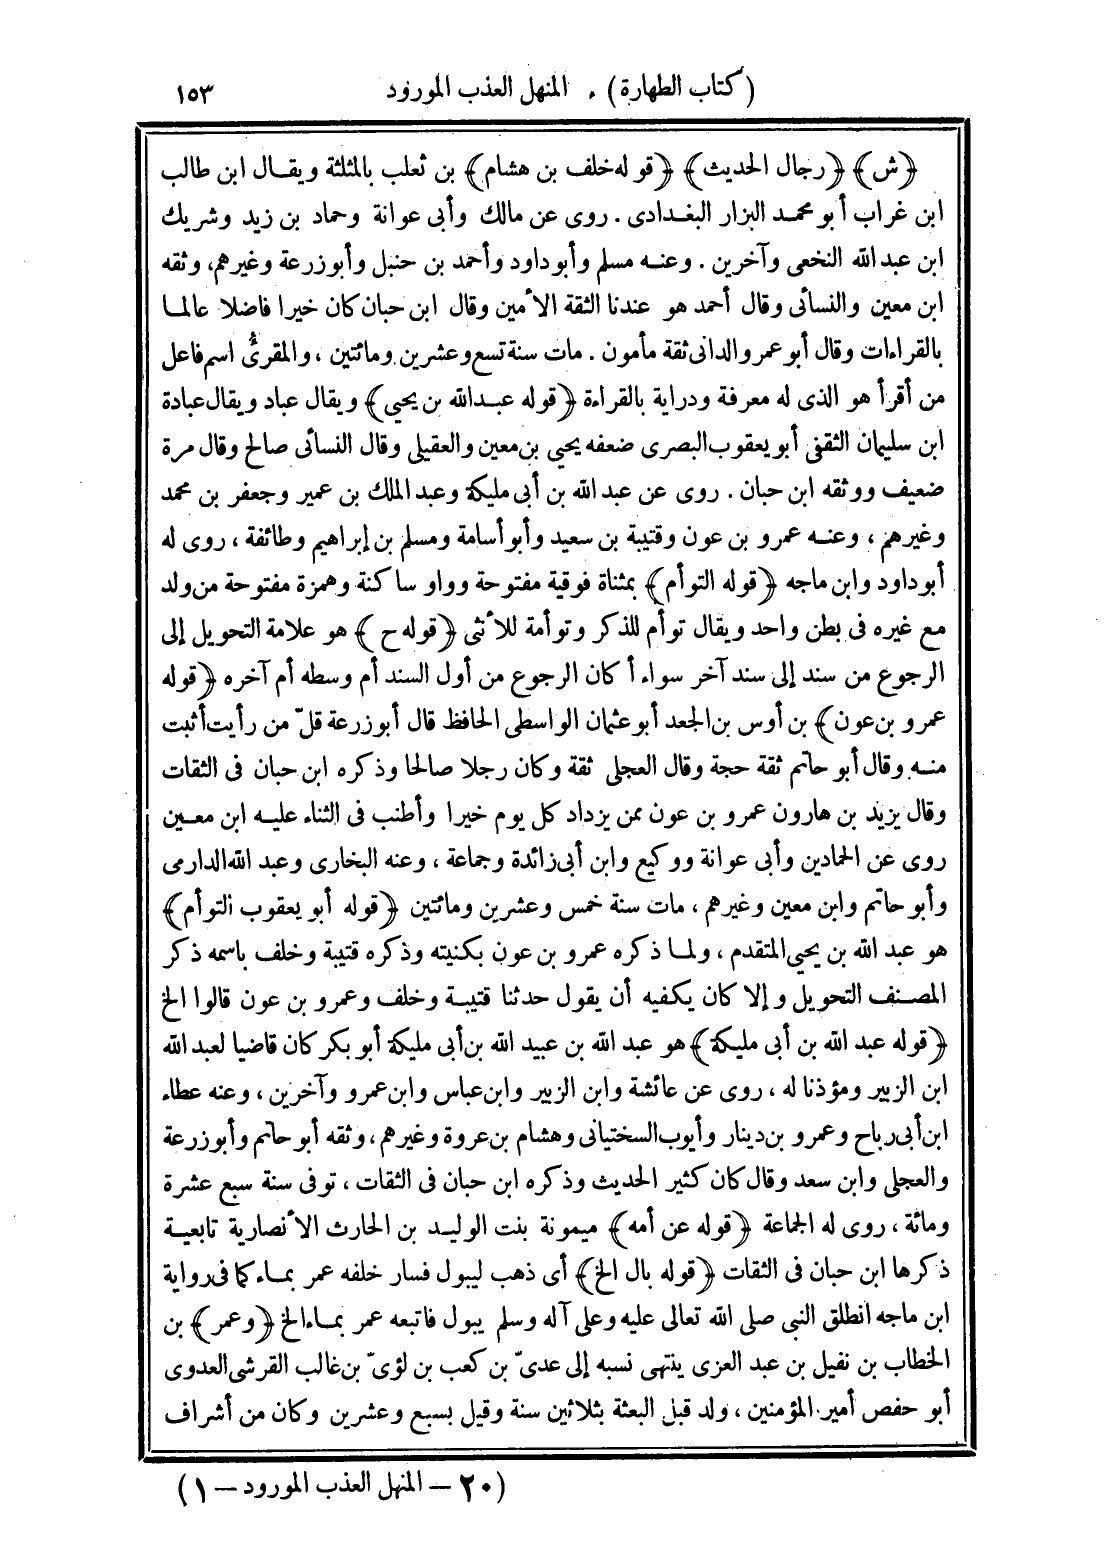 (كتاب الطهارة) . المنهل العذب المورود ١٥٣
﴿ش﴾ ﴿رجال الحديث﴾ ﴿قوله خلف بن هشام﴾ بن ثعلب بالمثلثة ويقال ابن طالب
ابن غراب أبو محمد البزار البغدادى . روى عن مالك وأبى عوانة وحماد بن زيد وشريك
ابن عبد الله النخعى وآخرين . وعنه مسلم وأبو داود وأحمد بن حنبل وأبو زرعة وغيرهم، وثقه
ابن معين والنسائى وقال أحمد هو عندنا الثقة الأمين وقال ابن حبان كان خيرا فاضلا عالما
بالقراءات وقال أبو عمرو الدانى ثقة مأمون . مات سنة تسع وعشرين ومائتين ، والمقرئُ اسم فاعل
من أقرأ هو الذى له معرفة ودراية بالقراءة ﴿قوله عبد الله بن يحيى﴾ ويقال عباد ويقال عبادة
ابن سليمان الثقفى أبو يعقوب البصرى ضعفه يحيى بن معين والعقيلى وقال النسائى صالح وقال مرة
ضعيف ووثقه ابن حبان . روى عن عبد الله بن أبى مليكة وعبد الملك بن عمير وجعفر بن محمد
وغيرهم ، وعنه عمرو بن عون وقتيبة بن سعيد وأبو أسامة ومسلم بن إبراهيم وطائفة ، روى له
أبو داود وابن ماجه ﴿قوله التوأم﴾ بمثناة فوقية مفتوحة وواو ساكنة وهمزة مفتوحة من ولد
مع غيره فى بطن واحد ويقال توأم للذكر وتوأمة للأنثى ﴿قوله ح﴾ هو علامة التحويل إلى
الرجوع من سند إلى سند آخر سواء أكان الرجوع من أول السند أم وسطه أم آخره ﴿قوله
عمرو بن عون﴾ بن أوس بن الجعد أبو عثمان الواسطى الحافظ قال أبو زرعة قلّ من رأيت أثبت
منه وقال أبو حاتم ثقة حجة وقال العجلى ثقة وكان رجلا صالحا وذكره ابن حبان فى الثقات
وقال يزيد بن هارون عمرو بن عون ممن يزداد كل يوم خيرا وأطنب فى الثناء عليه ابن معين
روى عن الحمادين وأبى عوانة ووكيع وابن أبى زائدة وجماعة ، وعنه البخارى وعبد الله الدارمى
وأبو حاتم وابن معين وغيرهم ، مات سنة خمس وعشرين ومائتين ﴿قوله أبو يعقوب التوأم﴾
هو عبد الله بن يحيى المتقدم ، ولما ذكره عمرو بن عون بكنيته وذكره قتيبة وخلف باسمه ذكر
المصنف التحويل وإلا كان يكفيه أن يقول حدثنا قتيبة وخلف وعمرو بن عون قالوا الخ
﴿قوله عبد الله بن أبى مليكة﴾ هو عبد الله بن عبيد الله بن أبى مليكة أبو بكر كان قاضيا لعبد الله
ابن الزبير ومؤذنا له ، روى عن عائشة وابن الزبير وابن عباس وابن عمرو وآخرين ، وعنه عطاء
ابن أبى رباح وعمرو بن دينار وأيوب السختيانى وهشام بن عروة وغيرهم، وثقه أبو حاتم وأبو زرعة
والعجلى وابن سعد وقال كان كثير الحديث وذكره ابن حبان فى الثقات ، توفى سنة سبع عشرة
ومائة ، روى له الجماعة ﴿قوله عن أمه﴾ ميمونة بنت الوليد بن الحارث الأنصارية تابعية
ذكرها ابن حبان فى الثقات ﴿قوله بال الخ﴾ أى ذهب ليبول فسار خلفه عمر بماء كما فى رواية
ابن ماجه انطلق النبى صلى الله تعالى عليه وعلى آله وسلم يبول فاتبعه عمر بماء الخ ﴿وعمر﴾ بن
الخطاب بن نفيل بن عبد العزى ينتهى نسبه إلى عدىّ بن كعب بن لؤىّ بن غالب القرشى العدوى
أبو حفص أمير المؤمنين ، ولد قبل البعثة بثلاثين سنة وقيل بسبع وعشرين وكان من أشراف
(٢٠ – المنهل العذب المورود – ١)